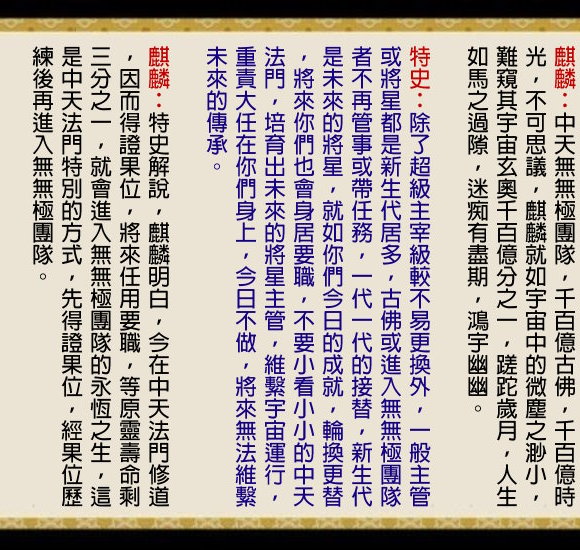 麒麟：中天無無極團隊，千百億古佛，千百億時
光，不可思議，麒麟就如宇宙中的微塵之渺小，
難窺其宇宙玄奧千百億分之一，蹉跎歲月，人生
如馬之過隙，迷痴有盡期，鴻宇幽幽。
特史：除了超級主宰級較不易更換外，一般主管
或將星都是新生代居多，古佛或進入無無極團隊
者不再管事或帶任務，一代一代的接替，新生代
是未來的將星，就如你們今日的成就，輪換更替
，將來你們也會身居要職，不要小看小小的中天
法門，培育出未來的將星主管，維繫宇宙運行，
重責大任在你們身上，今日不做，將來無法維繫
未來的傳承。
麒麟：特史解說，麒麟明白，今在中天法門修道
，因而得證果位，將來任用要職，等原靈壽命剩
三分之一，就會進入無無極團隊的永恆之生，這
是中天法門特別的方式，先得證果位，經果位歷
練後再進入無無極團隊。